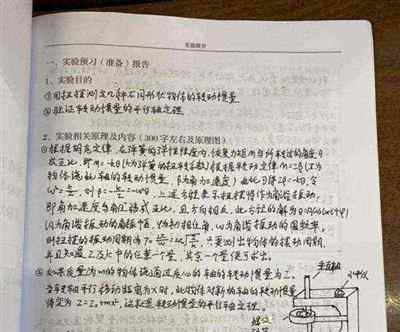 实验报告
一、实验预习(准备)报告
1、实验目的
①用扭摆测定几种不同形状物体的转动惯量
②验证转动惯量的平行轴定理。
2、实验相关原理及内容(300字左右及原理图)
①根据胡克定律,在弹簧的弹性限度内,恢复力矩M与所转过的角度θ
成正比,即M=-kθ(k为弹簧的扭转系数)根据转动定律M=Iβ(I为
物体绕 轴的转动惯量,β为角加速度)由此可得 令
ω²= ,则β= =-ω²θ,上述方程表示扭摆作角谐振动,
即角加速度与角位移成正比,且方向相反,此方程的解为θ=Acos(ωt+φ)
A为谐振动的角振幅,φ为初相位角,ω为谐振动的圆频率,
则扭摆的振动周期为T= =2π ,只要测出物体的摆动周期,
并且知道I及k中的任意一个量,其另一个量便可求出。
②如果质量为m的物体绕通过质心的轴的转动惯量为I。
当 轴平行移动距离为x时,此物体对新的轴的转动惯量
I=I。+mx²,这就是转动惯量的平行轴定理。